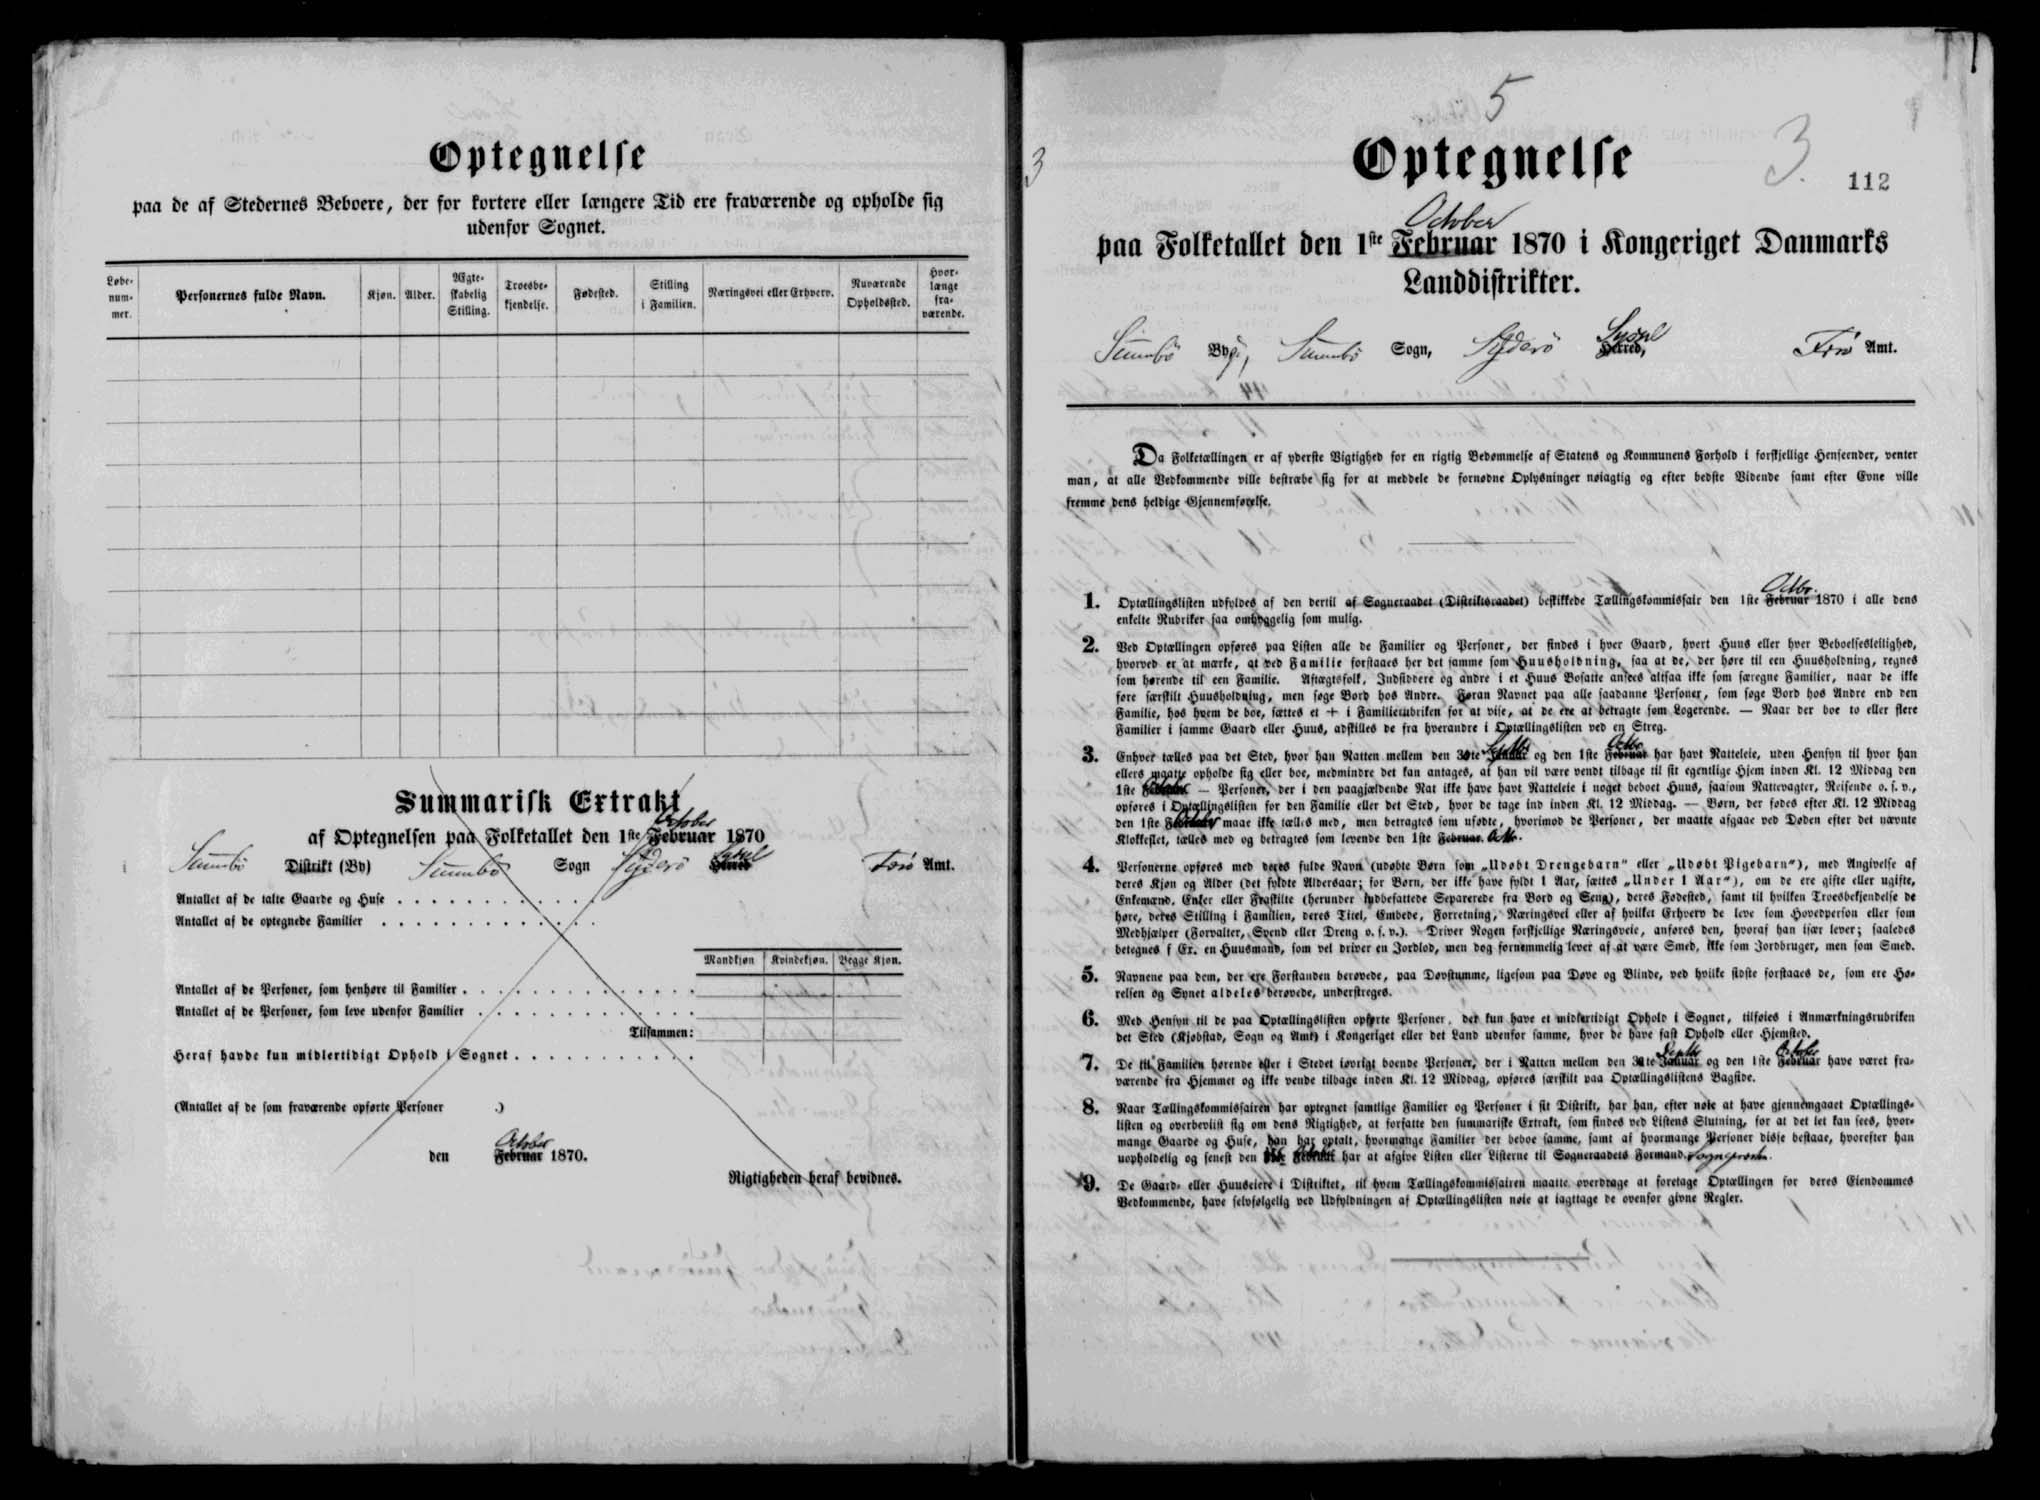 Optegnelse
paa de af Stedernes Beboere, der for kortere eller længere Tid ere fraværende og opholde sig
udenfor Sognet.
Løbe-
num-
mer.
Personernes fulde Navn.
Kjøn.
Alder.
Ægte-
skabelig
Stilling.
Troesbe-
kjendelse.
Fødested.
Stilling
i Familien.
Næringsvei eller Erhverv.
Nuværende
Opholdssted.
Hvor-
længe
fra-
værende.
Summarisk Extrakt
October
af Optegnelsen paa Folketallet den 1ste Februar 1870
Sumbö Distrikt (By) Sumbö Sogn Syderö Syssel Herred Færö Amt.
Antallet af de talte Gaarde og Huse . . . . . . . . . . . .
Antallet af de optegnede Familier . . . . . . . . . . . . .
Mandkjøn Kvindekjøn. Begge Kjøn.
Antallet af de Personer, som henhøre til Familier . . . . . . . . . . . . . .
Antallet af de Personer, som leve udenfor Familier . . . . . . . . . . . . .
Tilsammen:
Heraf havde kun midlertidigt Ophold i Sognet . . . . . . . . . . .
(Antallet af de som fraværende opførte Personer .)
October
den Februar 1870.
Rigtigheden heraf bevidnes.
5
3
3.
112
Optegnelse
October
paa Folketallet den 1ste Februar 1870 i Kongeriget Danmarks
Landdistrikter.
Syssel
Sumbö Bygd, Sumbö Sogn, Syderö Herred, Færö Amt.
Da Folketællingen er af yderste Vigtighed for en rigtig Bedømmelse af Statens og Kommunens Forhold i forskjellige Henseender, venter
man, at alle Vedkommende ville bestræbe sig for at meddele de fornødne Oplysninger nøiagtig og efter bedste Vidende samt efter Evne ville
fremme dens heldige Gjennemførelse.
Octbr.
1. Optællingslisten udfyldes af den dertil af Sogneraadet (Distriktsraadet) beskikkede Tællingskommissair den 1ste Februar 1870 i alle dens
enkelte Rubriker saa omhyggelig som mulig.
2. Ved Optællingen opføres paa Listen alle de Familier og Personer, der findes i hver Gaard, hvert Huus eller hver Beboelsesleilighed,
hvorved er at mærke, at ved Familie forstaaes her det samme som Huusholdning, saa at de, der høre til een Huusholdning, regnes
som hørende til een Familie. Aftægtsfolk, Indsiddere og andre i et Huus Bosatte ansees altsaa ikke som særegne Familier, naar de ikke
føre særskilt Huusholdning, men søge Bord hos Andre. Foran Navnet paa alle saadanne Personer, som søge Bord hos Andre end den
Familie, hos hvem de boe, sættes et + i Familierubriken for at vise, at de ere at betragte som Logerende. — Naar der boe to eller flere
Familier i samme Gaard eller Huus, adskilles de fra hverandre i Optællingslisten ved en Streg.
Septbr Octbr
3. Enhver tælles paa det Sted, hvor han Natten mellem den 30te Januar og den 1ste Februar har havt Natteleie, uden Hensyn til hvor han
ellers maatte opholde sig eller boe, medmindre det kan antages, at han vil være vendt tilbage til sit egentlige Hjem inden Kl. 12 Middag den
1ste Februar — Personer, der i den paagjældende Nat ikke have havt Natteleie i noget beboet Huus, saasom Nattevagter, Reisende o. s. v.,
opføres i Optællingslisten for den Familie eller det Sted, hvor de tage ind inden Kl. 12 Middag. — Børn, der fødes efter Kl. 12 Middag
den 1ste Februar maae ikke tælles med, men betragtes som ufødte, hvorimod de Personer, der maatte afgaae ved Døden efter det nævnte
Klokkeslet, tælles med og betragtes som levende den 1ste Februar. Octbr.
4. Personerne opføres med deres fulde Navn (udøbte Børn som „Udøbt Drengebarn“ eller „Udøbt Pigebarn“), med Angivelse af
deres Kjøn og Alder (det fyldte Aldersaar; for Børn, der ikke have fyldt 1 Aar, sættes „Under 1 Aar“), om de ere gifte eller ugifte,
Enkemænd, Enker eller Fraskilte (herunder indbefattede Separerede fra Bord og Seng), deres Fødested, samt til hvilken Troesbekjendelse de
høre, deres Stilling i Familien, deres Titel, Embede, Forretning, Næringsvei eller af hvilket Erhverv de leve som Hovedperson eller som
Medhjælper (Forvalter, Svend eller Dreng o. s. v.). Driver Nogen forskjellige Næringsveie, anføres den, hvoraf han især lever; saaledes
betegnes f Ex. en Huusmand, som vel driver en Jordlod, men dog fornemmelig lever af at være Smed, ikke som Jordbruger, men som Smed.
5. Navnene paa dem, der ere Forstanden berøvede, paa Døvstumme, ligesom paa Døve og Blinde, ved hvilke sidste forstaaes de, som ere Hø-
relsen og Synet aldeles berøvede, understreges.
6. Med Hensyn til de paa Optællingslisten opførte Personer, der kun have et midlertidigt Ophold i Sognet, tilføies i Anmærkningsrubriken
det Sted (Kjøbstad, Sogn og Amt) i Kongeriget eller det Land udenfor samme, hvor de have fast Ophold eller Hjemsted.
Septbr October
7. De til Familien hørende eller i Stedet iøvrigt boende Personer, der i Natten mellem den 30te Januar og den 1ste Februar have været fra-
værende fra Hjemmet og ikke vende tilbage inden Kl. 12 Middag, opføres særskilt paa Optællingslistens Bagside.
8. Naar Tællingskommissairen har optegnet samtlige Familier og Personer i sit Distrikt, har han, efter nøie at have gjennemgaaet Optællings-
listen og overbevist sig om dens Rigtighed, at forfatte den summariske Extrakt, som findes ved Listens Slutning, for at det let kan sees, hvor-
mange Gaarde og Huse, han har optalt, hvormange Familier der beboe samme, samt af hvormange Personer disse bestaae, hvorefter han
uopholdelig og senest den Februar har at afgive Listen eller Listerne til Sogneraadets Formand. Sognepræsten.
9. De Gaard- eller Huuseiere i Distriktet, til hvem Tællingskommissairen maatte overdrage at foretage Optællingen for deres Eiendommes
Vedkommende, have selvfølgelig ved Udfyldningen af Optællingslisten nøie at iagttage de ovenfor givne Regler.